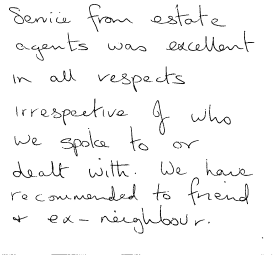 Service from estate
agents was excellent
in all respects
irrespective of who
we spoke to or
dealt with. We have
recommended to friend
+ ex-neighbour.